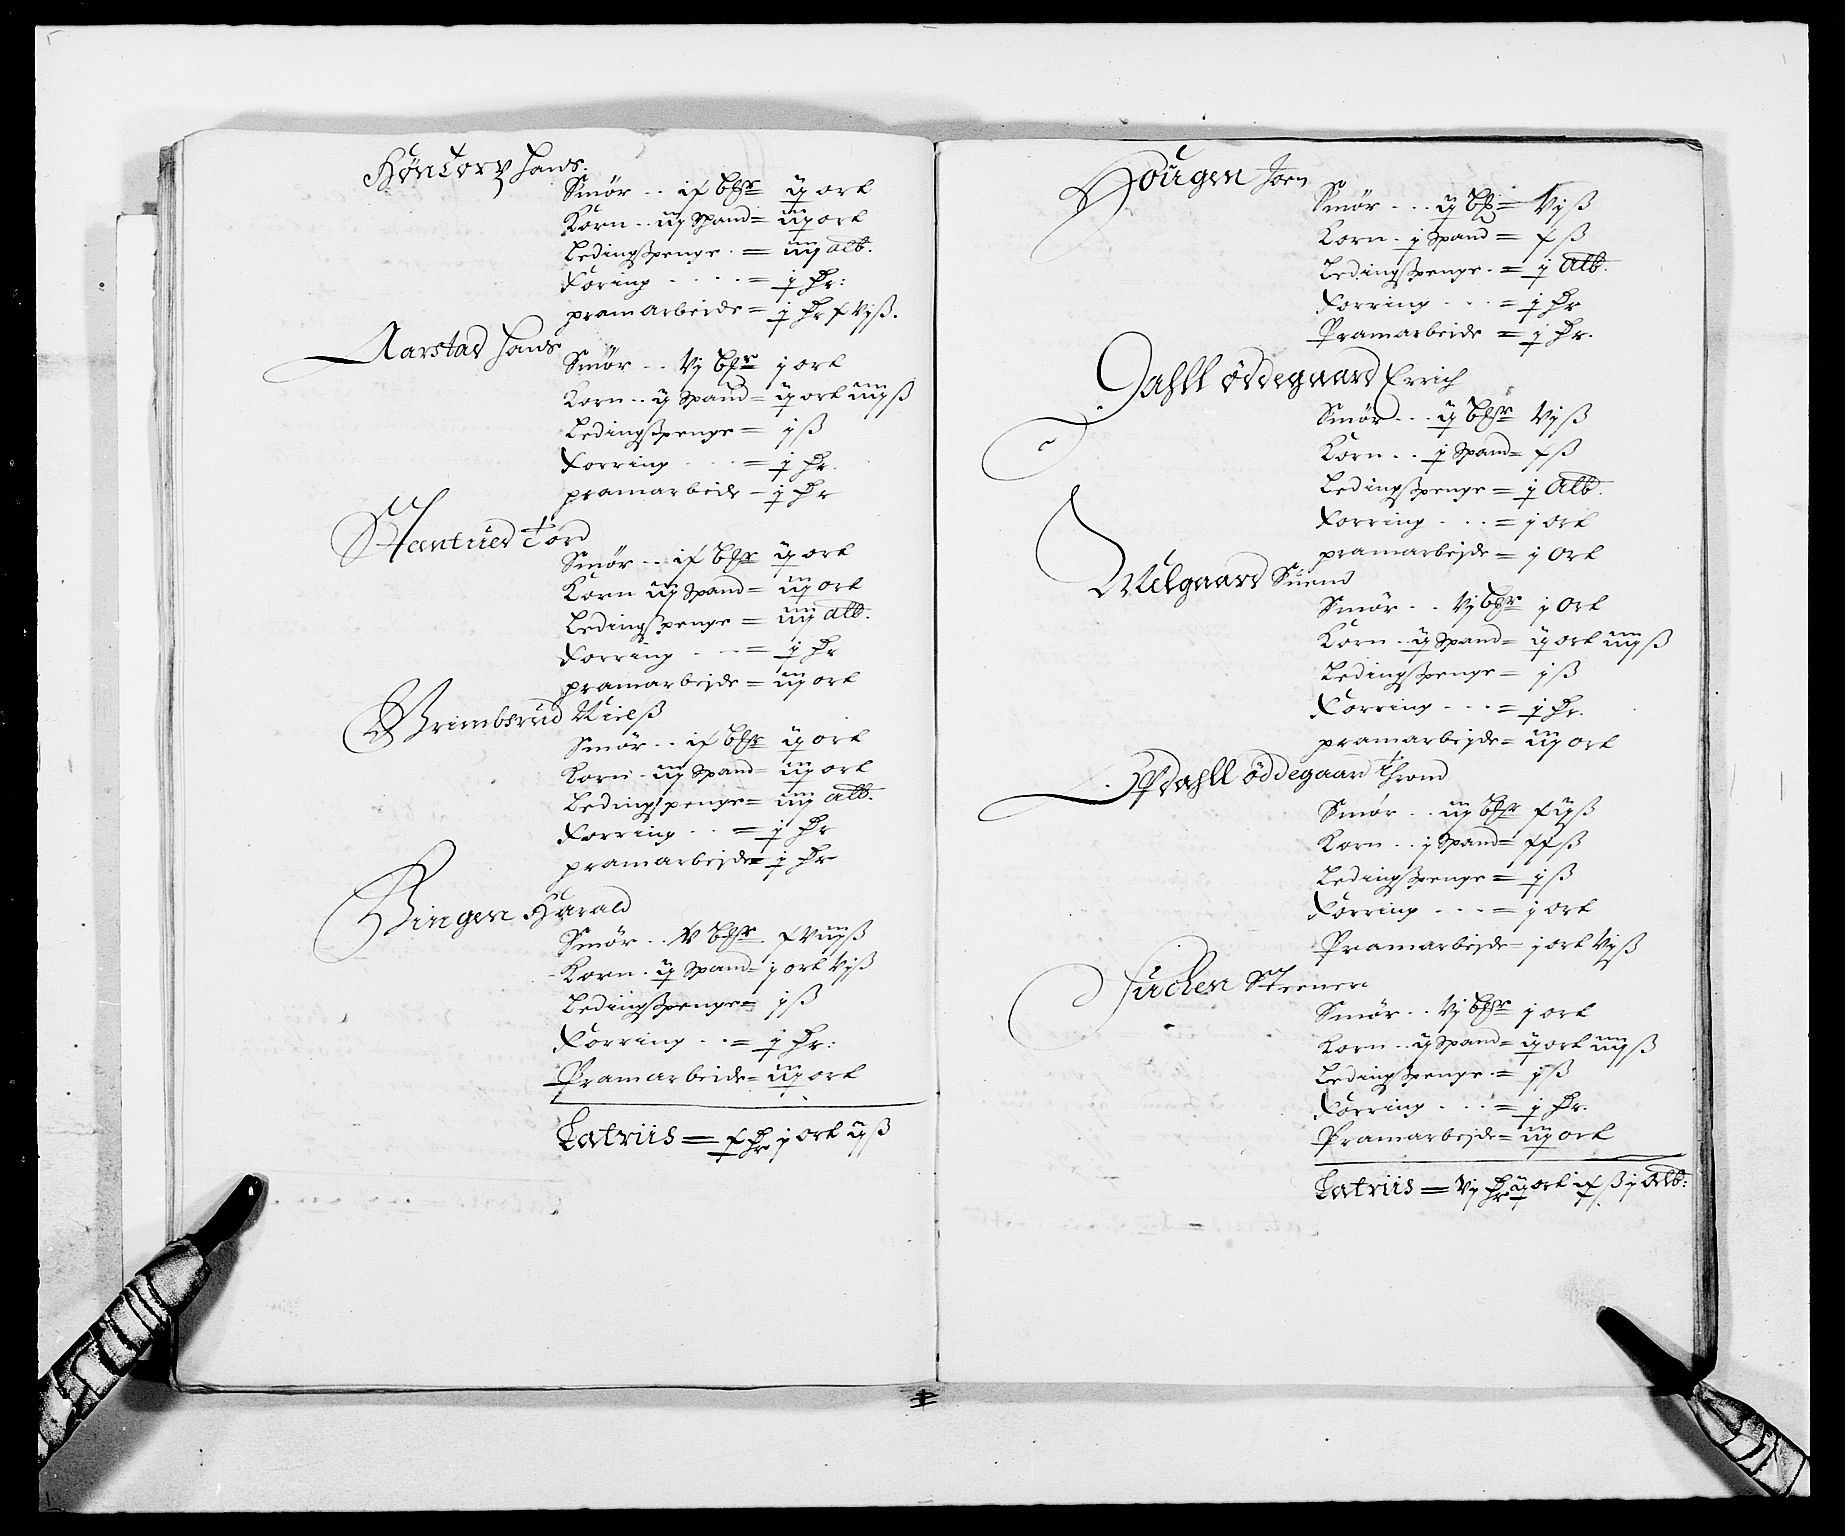 Höntorp Hans.
Smör .. if bßr ij ort
Korn .. iij Spand = iij ort
Ledingßpenge . = iiij alb.
Foring .... = j Dr:
pramarbeide = j Dr f Vjß.
Aarstad Hans
Smör .. Vj bßr j ort
Korn .. ij Spand = ij ort iiijß
Ledingßpenge = jß
Forring ... = j Dr.
pramarbeide = j Dr
Tord
Smör ... if bßr ij ort
Korn iij Spand = iij ort
Ledingßpenge = iiij alb.
Forring ... = j Dr
pramarbejde = iij ort
Grimbsrud Nielß
Smör ... if bßr ij ort
Korn .. iij Spand = iij ort
Ledingßpenge = iiij alb.
Forring .. = j Dr
pramarbejde = j Dr
Bingen Harald
Smör .. V bßr fViijß
Korn . ij Spand = j ort Vjß
Ledingßpenge = jß
Forring .. = j Dr:
Pramarbeide = iij ort
Latriis = f Dr j ort ijß
Hougen Joen
Smör ... ij bß = Vjß
Korn . j Spand = fß
Ledingßpenge . = j Alb.
Forring ... = j Dr
Pramarbeide = j Dr.
Dahll öddegaard Errich
Smör ... ij bßr Vjß
Korn .. j Spand = fß
Ledingßpenge = j Alb.
Forring ... = j ort
pramarbejde = j Ort
Melgaard Suend
Smör .. Vj bßr j Ort
Korn . ij Spand = ij ort iiijß
Ledingßpenge = jß
Forring ... = j Dr.
pramarbejde = iij ort
Opdahll öddegaard Thrond
Smör .. iij bßr fijß
Korn .. j Spand = ffß
Ledingßpenge = jß
Forring ... = j ort
Pramarbejde = j ort Vjß
Steener
Smör .. Vj bßr j ort
Korn .. ij Spand = ij ort iiijß
Ledingßpenge . = jß
Forring ... = j Dr.
Pramarbejde = iij ort
Latriis = Vj Dr ij ort if ß j Alb: